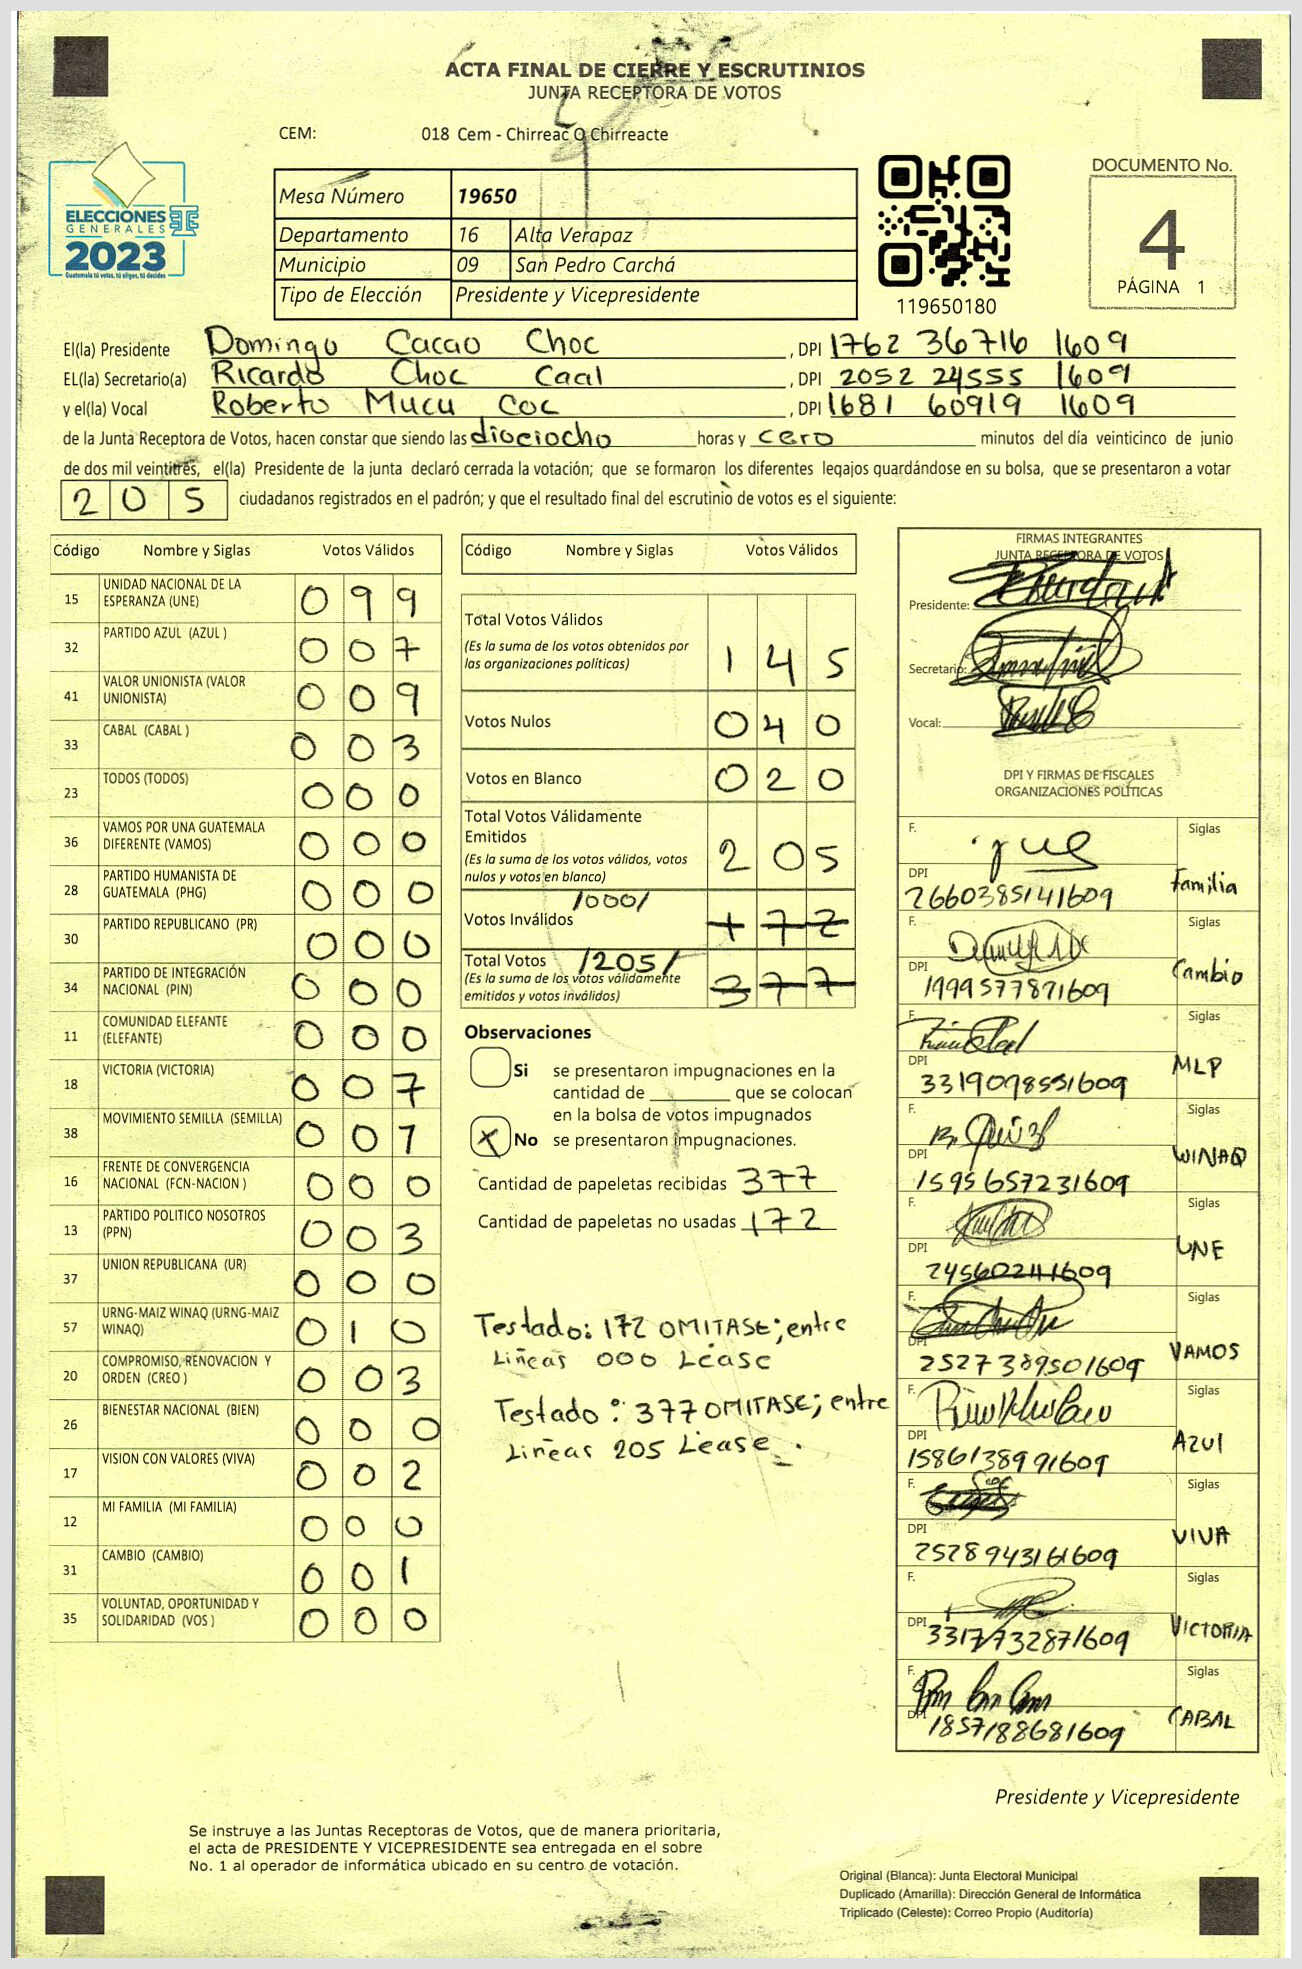 ACTA FINAL DE CIERRE Y ESCRUTINIOS
JUNTA RECEPTORA DE VOTOS
CEM: 018 Cem - Chirreac O Chirreacte
ELECCIONES
GENERALES
2023
Guatemala tú votas, tú eliges, tú decides
Mesa Número 19650
Departamento 16 Alta Verapaz
Municipio 09 San Pedro Carchá
Tipo de Elección Presidente y Vicepresidente
119650180
DOCUMENTO No.
4
PÁGINA 1
El(la) Presidente Domingo Cacao Choc , DPI 1762 36716 1609
EL(la) Secretario(a) Ricardo Choc Caal , DPI 2052 24555 1609
y el(la) Vocal Roberto Mucu Coc , DPI 1681 60919 1609
de la Junta Receptora de Votos, hacen constar que siendo las dieciocho horas y cero minutos del día veinticinco de junio
de dos mil veintitrés, el(la) Presidente de la junta declaró cerrada la votación; que se formaron los diferentes legajos guardándose en su bolsa, que se presentaron a votar
205 ciudadanos registrados en el padrón; y que el resultado final del escrutinio de votos es el siguiente:
Código Nombre y Siglas Votos Válidos
15 UNIDAD NACIONAL DE LA
ESPERANZA (UNE) 099
32 PARTIDO AZUL (AZUL ) 007
41 VALOR UNIONISTA (VALOR
UNIONISTA) 009
33 CABAL (CABAL ) 003
23 TODOS (TODOS) 000
36 VAMOS POR UNA GUATEMALA
DIFERENTE (VAMOS) 000
28 PARTIDO HUMANISTA DE
GUATEMALA (PHG) 000
30 PARTIDO REPUBLICANO (PR) 000
34 PARTIDO DE INTEGRACIÓN
NACIONAL (PIN) 000
11 COMUNIDAD ELEFANTE
(ELEFANTE) 000
18 VICTORIA (VICTORIA) 007
38 MOVIMIENTO SEMILLA (SEMILLA) 001
16 FRENTE DE CONVERGENCIA
NACIONAL (FCN-NACION ) 000
13 PARTIDO POLITICO NOSOTROS
(PPN) 003
37 UNION REPUBLICANA (UR) 000
57 URNG-MAIZ WINAQ (URNG-MAIZ
WINAQ) 010
20 COMPROMISO, RENOVACION Y
ORDEN (CREO ) 003
26 BIENESTAR NACIONAL (BIEN) 000
17 VISION CON VALORES (VIVA) 002
12 MI FAMILIA (MI FAMILIA) 000
31 CAMBIO (CAMBIO) 001
35 VOLUNTAD, OPORTUNIDAD Y
SOLIDARIDAD (VOS ) 000
Código Nombre y Siglas Votos Válidos
Total Votos Válidos
(Es la suma de los votos obtenidos por
las organizaciones políticas) 145
Votos Nulos 040
Votos en Blanco 020
Total Votos Válidamente
Emitidos
(Es la suma de los votos válidos, votos
nulos y votos en blanco) 205
/000/
Votos Inválidos 172
Total Votos /205/
(Es la suma de los votos válidamente
emitidos y votos inválidos) 377
Observaciones
Si se presentaron impugnaciones en la
cantidad de ________ que se colocan
en la bolsa de votos impugnados
X No se presentaron impugnaciones.
Cantidad de papeletas recibidas 377
Cantidad de papeletas no usadas 172
Testado: 172 OMITASE; entre
Lineas 000 Lease
Testado: 377 OMITASE; entre
Lineas 205 Lease.
FIRMAS INTEGRANTES
JUNTA RECEPTORA DE VOTOS
Presidente:
Secretario:
Vocal:
DPI Y FIRMAS DE FISCALES
ORGANIZACIONES POLÍTICAS
F. Siglas
DPI 2660385141609 Familia
F. Siglas
DPI 1999577871609 Cambio
F. Siglas
DPI 3319098551609 MLP
F. Siglas
DPI 1595657231609 WINAQ
F. Siglas
DPI 245602441609 UNE
F. Siglas
DPI 2527389501609 VAMOS
F. Siglas
DPI 1586138991609 AZUL
F. Siglas
DPI 2528943161609 VIVA
F. Siglas
DPI 3317732871609 VICTORIA
F. Siglas
DPI 1857188681609 CABAL
Presidente y Vicepresidente
Se instruye a las Juntas Receptoras de Votos, que de manera prioritaria,
el acta de PRESIDENTE Y VICEPRESIDENTE sea entregada en el sobre
No. 1 al operador de informática ubicado en su centro de votación.
Original (Blanca): Junta Electoral Municipal
Duplicado (Amarilla): Dirección General de Informática
Triplicado (Celeste): Correo Propio (Auditoría)